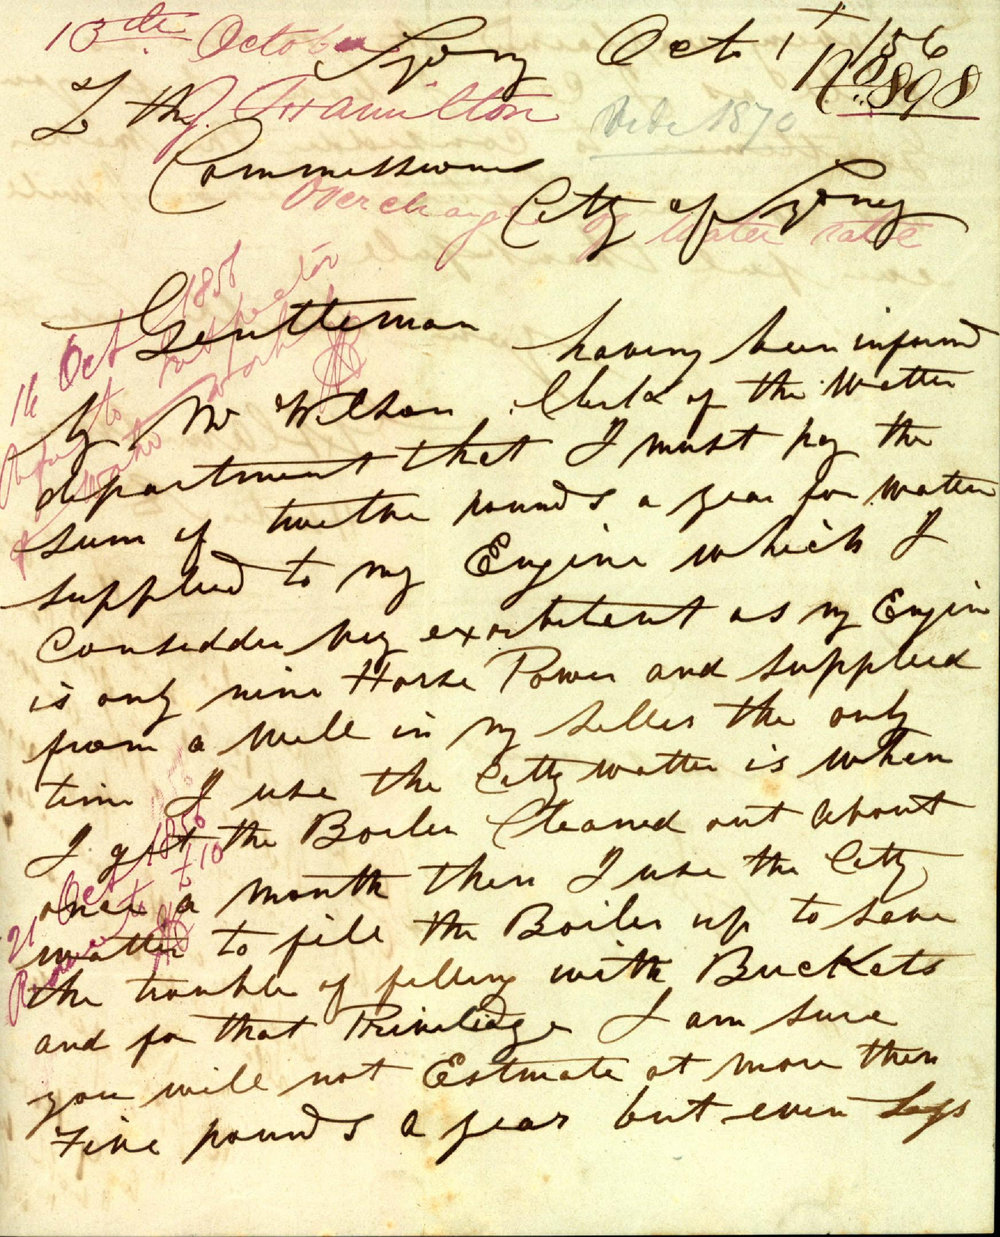 13th October
Sydney Oct 1st /56
No. 898
J. Hamilton
To the
Vide 1870
Commissioners
Overcharge of Water rate
City of Sydney
Gentleman having been inform
16 Oct 1856
Refer to Inspector
Water Works
By Mr Wilson Clerk of the Watter
department that I must pay the
sum of twelthe pounds a year for watter
supplied to my Engine which I
Consedder very exorbitent as my Engin
is only nine Horse Power and supplied
from a Well in my seller the only
time I use the Citty watter is when
I get the Boiler Cleaned out about
21 Oct 1856
to £10
once a month then I use the Citty
watter to fill the Boiler up to save
the trouble of felling with Buckets
and for that Privelidge I am sure
you will not Estmate at more then
Five pounds a year but even